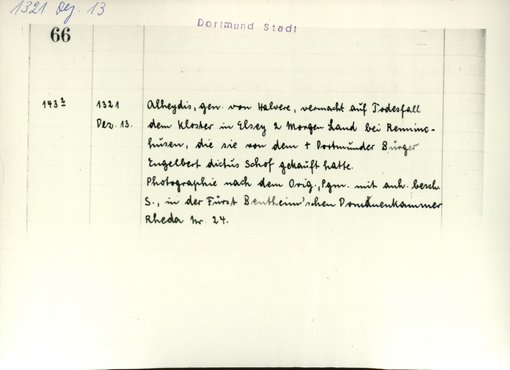 1321 Dez. 13
Dortmund Stadt
66
143² 1321 Alheydis, gen. von Halvere, vermacht auf Todesfall
Dez. 13. dem Kloster in Elsey 2 Morgen Land bei Remninc-
husen, die sie von dem + Dortmunder Bürger
Engelbert dictus Schof gekauft hatte.
Photographie nach dem Orig., Pgm. mit anh. besch.
S., in der Fürst Bentheim'schen Domänenkammer
Rheda Nr. 24.